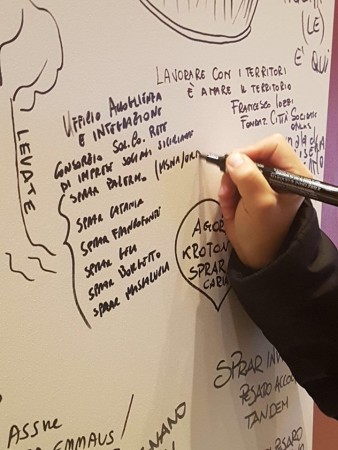 (LE)
E' QUI
LAVORARE CON I TERRITORI
È AMARE IL TERRITORIO
FRANCESCO
FONDAZ. CITTÀ SOLIDALE
LEVATE
UFFICIO ACCOGLIENZA
E INTEGRAZIONE
CONSORZIO SOL.CO. RETE
DI IMPRESE SOCIALI SICILIANE
SPRAR PALERMO (MSNA/ORD
SPRAR CATANIA
SPRAR FRANCOFONTE
SPRAR
SPRAR BORGETTO
SPRAR MASCALUCIA
AGORÀ
KROTON
SPRAR
CARIA
SPRAR
PESARO ACCO
TANDEM
PESARO
GNANO
ASSNE
EMMAUS/